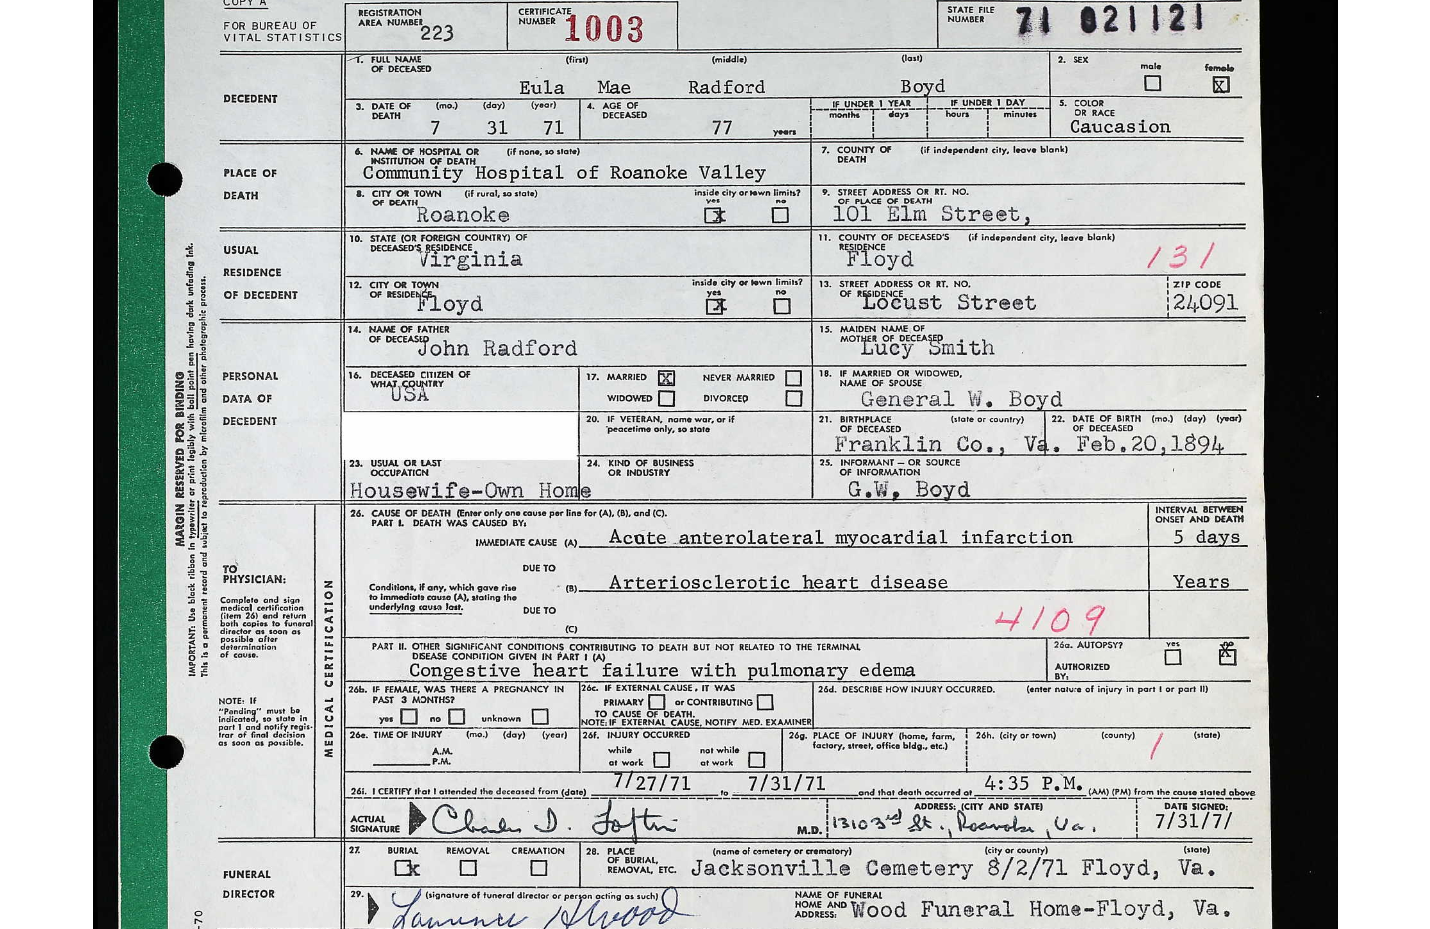 COPY A
FOR BUREAU OF
VITAL STATISTICS
REGISTRATION
AREA NUMBER 223
CERTIFICATE
NUMBER 1003
STATE FILE
NUMBER 71 021121
DECEDENT
1. FULL NAME (first) (middle) (last)
OF DECEASED
Eula Mae Radford Boyd
2. SEX
male female
X
3. DATE OF (mo.) (day) (year)
DEATH
7 31 71
4. AGE OF
DECEASED
77 years
IF UNDER 1 YEAR IF UNDER 1 DAY
months days hours minutes
5. COLOR
OR RACE
Caucasion
PLACE OF
DEATH
6. NAME OF HOSPITAL OR (if none, so state)
INSTITUTION OF DEATH
Community Hospital of Roanoke Valley
7. COUNTY OF (if independent city, leave blank)
DEATH
8. CITY OR TOWN (if rural, so state)
OF DEATH
Roanoke
inside city or town limits?
yes no
x
9. STREET ADDRESS OR RT. NO.
OF PLACE OF DEATH
101 Elm Street,
USUAL
RESIDENCE
OF DECEDENT
10. STATE (OR FOREIGN COUNTRY) OF
DECEASED'S RESIDENCE
Virginia
11. COUNTY OF DECEASED'S (if independent city, leave blank)
RESIDENCE
Floyd
131
12. CITY OR TOWN
OF RESIDENCE
Floyd
inside city or town limits?
yes no
x
13. STREET ADDRESS OR RT. NO.
OF RESIDENCE
Locust Street
ZIP CODE
24091
PERSONAL
DATA OF
DECEDENT
14. NAME OF FATHER
OF DECEASED
John Radford
15. MAIDEN NAME OF
MOTHER OF DECEASED
Lucy Smith
16. DECEASED CITIZEN OF
WHAT COUNTRY
USA
17. MARRIED X NEVER MARRIED
WIDOWED DIVORCED
18. IF MARRIED OR WIDOWED,
NAME OF SPOUSE
General W. Boyd
20. IF VETERAN, name war, or if
peacetime only, so state
21. BIRTHPLACE (state or country)
OF DECEASED
Franklin Co., Va.
22. DATE OF BIRTH (mo.) (day) (year)
OF DECEASED
Feb.20,1894
23. USUAL OR LAST
OCCUPATION
Housewife-Own Home
24. KIND OF BUSINESS
OR INDUSTRY
25. INFORMANT – OR SOURCE
OF INFORMATION
G.W. Boyd
MARGIN RESERVED FOR BINDING
IMPORTANT: Use black ribbon in typewriter or print legibly with ball point pen having dark unfading ink.
This is a permanent record and subject to reproduction by microfilm and other photographic process.
TO
PHYSICIAN:
Complete and sign
medical certification
(item 26) and return
both copies to funeral
director as soon as
possible after
determination
of cause.
NOTE: If
"Pending" must be
indicated, so state in
part 1 and notify regis-
trar of final decision
as soon as possible.
MEDICAL CERTIFICATION
26. CAUSE OF DEATH (Enter only one cause per line for (A), (B), and (C).
PART I. DEATH WAS CAUSED BY:
INTERVAL BETWEEN
ONSET AND DEATH
IMMEDIATE CAUSE (A) Acute anterolateral myocardial infarction 5 days
DUE TO
Conditions, if any, which gave rise
to immediate cause (A), stating the
underlying cause last.
(B) Arteriosclerotic heart disease Years
DUE TO
(C)
4109
PART II. OTHER SIGNIFICANT CONDITIONS CONTRIBUTING TO DEATH BUT NOT RELATED TO THE TERMINAL
DISEASE CONDITION GIVEN IN PART I (A)
Congestive heart failure with pulmonary edema
26a. AUTOPSY? yes no
X
AUTHORIZED
BY:
26b. IF FEMALE, WAS THERE A PREGNANCY IN
PAST 3 MONTHS?
yes no unknown
26c. IF EXTERNAL CAUSE, IT WAS
PRIMARY or CONTRIBUTING
TO CAUSE OF DEATH.
NOTE: IF EXTERNAL CAUSE, NOTIFY MED. EXAMINER
26d. DESCRIBE HOW INJURY OCCURRED. (enter nature of injury in part I or part II)
26e. TIME OF INJURY (mo.) (day) (year)
A.M.
P.M.
26f. INJURY OCCURRED
while not while
at work at work
26g. PLACE OF INJURY (home, farm,
factory, street, office bldg., etc.)
26h. (city or town) (county) (state)
1
26i. I CERTIFY that I attended the deceased from (date) 7/27/71 to 7/31/71 and that death occurred at 4:35 P.M. (AM) (PM) from the cause stated above
ACTUAL
SIGNATURE
Charles D. Loftin M.D.
ADDRESS: (CITY AND STATE)
1310 3rd St., Roanoke, Va.
DATE SIGNED:
7/31/7/
FUNERAL
DIRECTOR
27. BURIAL REMOVAL CREMATION
x
28. PLACE (name of cemetery or crematory) (city or county) (state)
OF BURIAL,
REMOVAL, ETC.
Jacksonville Cemetery 8/2/71 Floyd, Va.
29. (signature of funeral director or person acting as such)
NAME OF FUNERAL
HOME AND
ADDRESS:
Wood Funeral Home-Floyd, Va.
-70